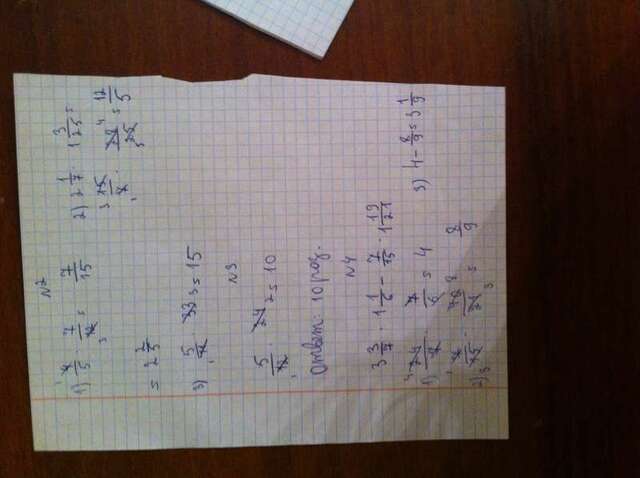 №2
1) 4/5 · 7/12 = 7/15
2) 2 1/7 · 1 3/25 =
15/7 · 28/25 = 12/5
= 2 2/5
3) 5/11 · 33 = 15
№3
5/12 · 24 = 10
Ответ: 10 роз.
№4
3 3/7 · 1 1/6 - 7/15 · 1 19/21
1) 24/7 · 7/6 = 4
3) 4 - 8/9 = 3 1/9
2) 7/15 · 40/21 = 8/9